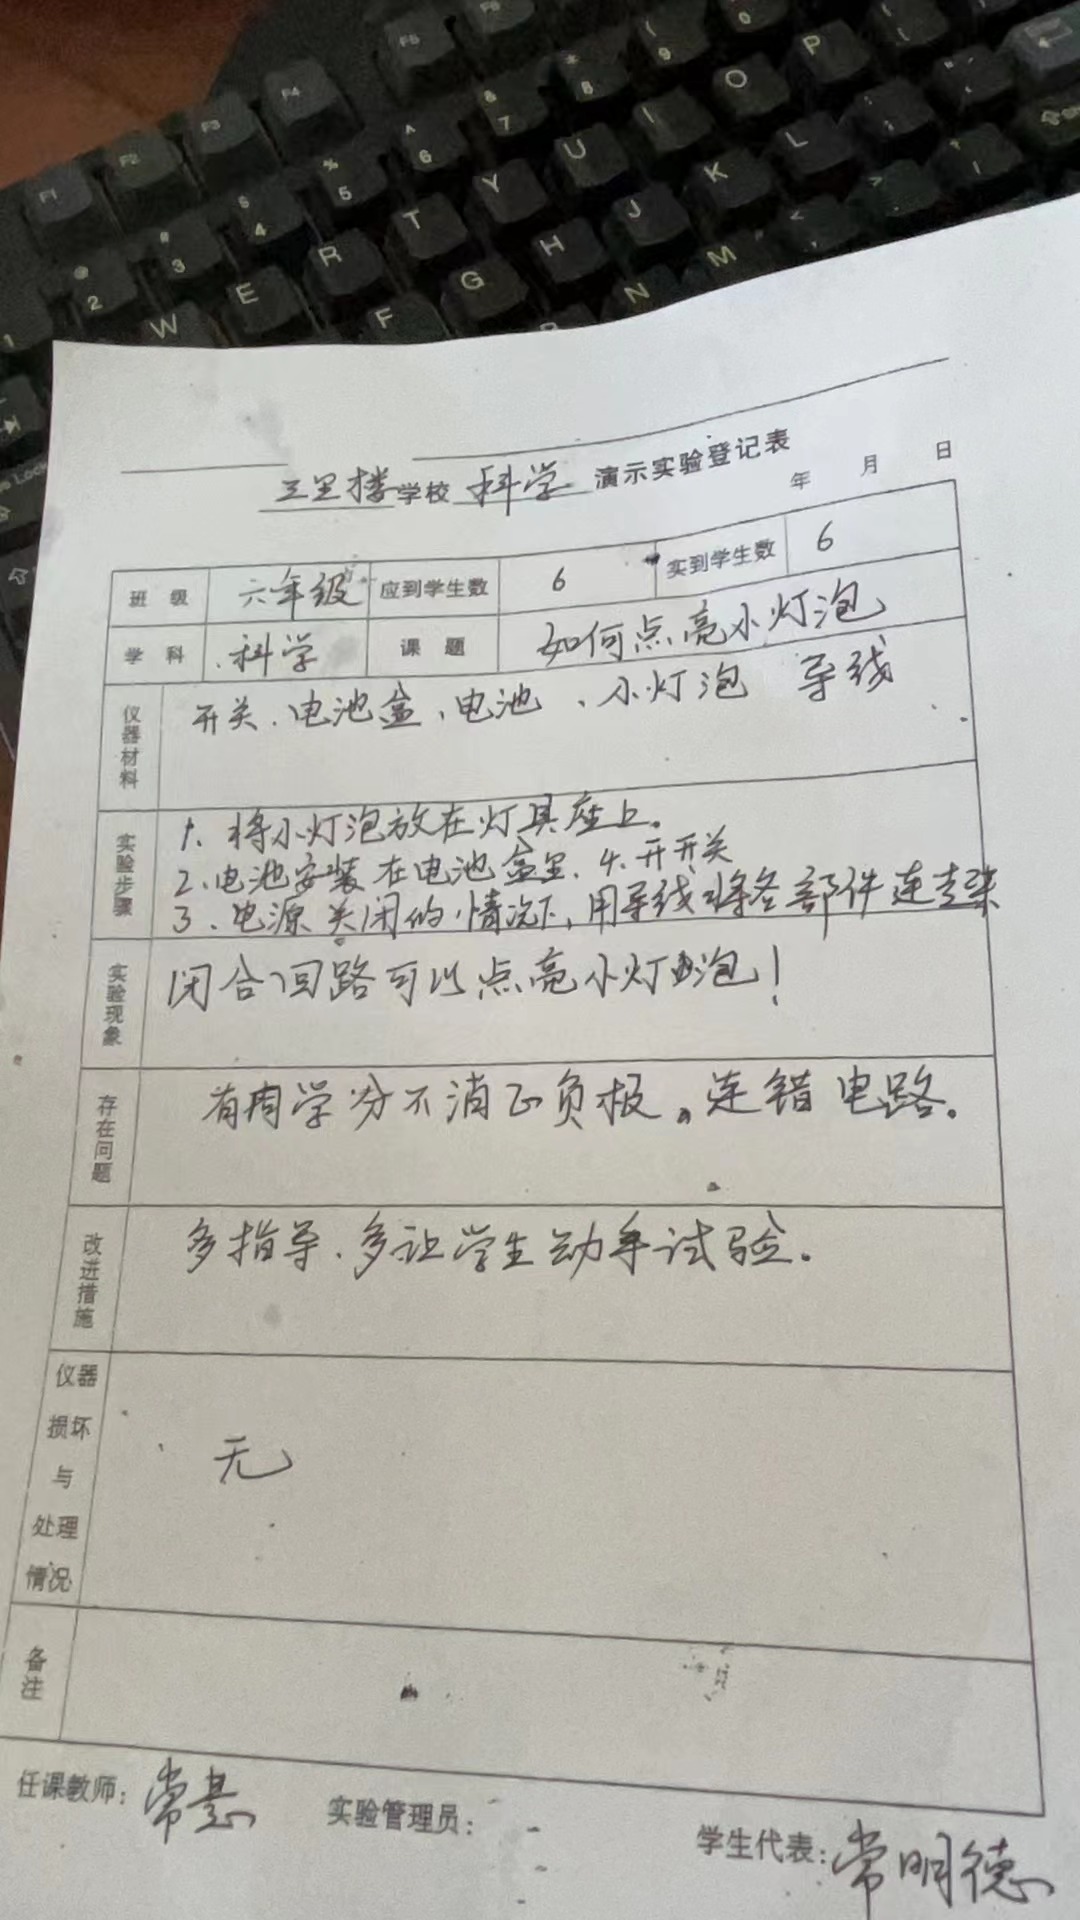 F1 F2 F3 F4 F5 F6
2 3 4 5 6 7 8 9 0
W E R T Y U I O P
F G H J K L
N M
三里楼学校 科学 演示实验登记表
年 月 日
班级 六年级 应到学生数 6 实到学生数 6
学科 科学 课题 如何点亮小灯泡
仪器材料 开关、电池盒、电池、小灯泡 导线
实验步骤
1、将小灯泡放在灯具座上。
2、电池安装在电池盒里、4、开开关
3、电源关闭的情况下,用导线将各部件连起来
实验现象 闭合回路可以点亮小灯泡!
存在问题 有同学分不清正负极。连错电路。
改进措施 多指导、多让学生动手试验。
仪器
损坏
与
处理
情况
无
备注
任课教师: 常 实验管理员: 学生代表: 常明德